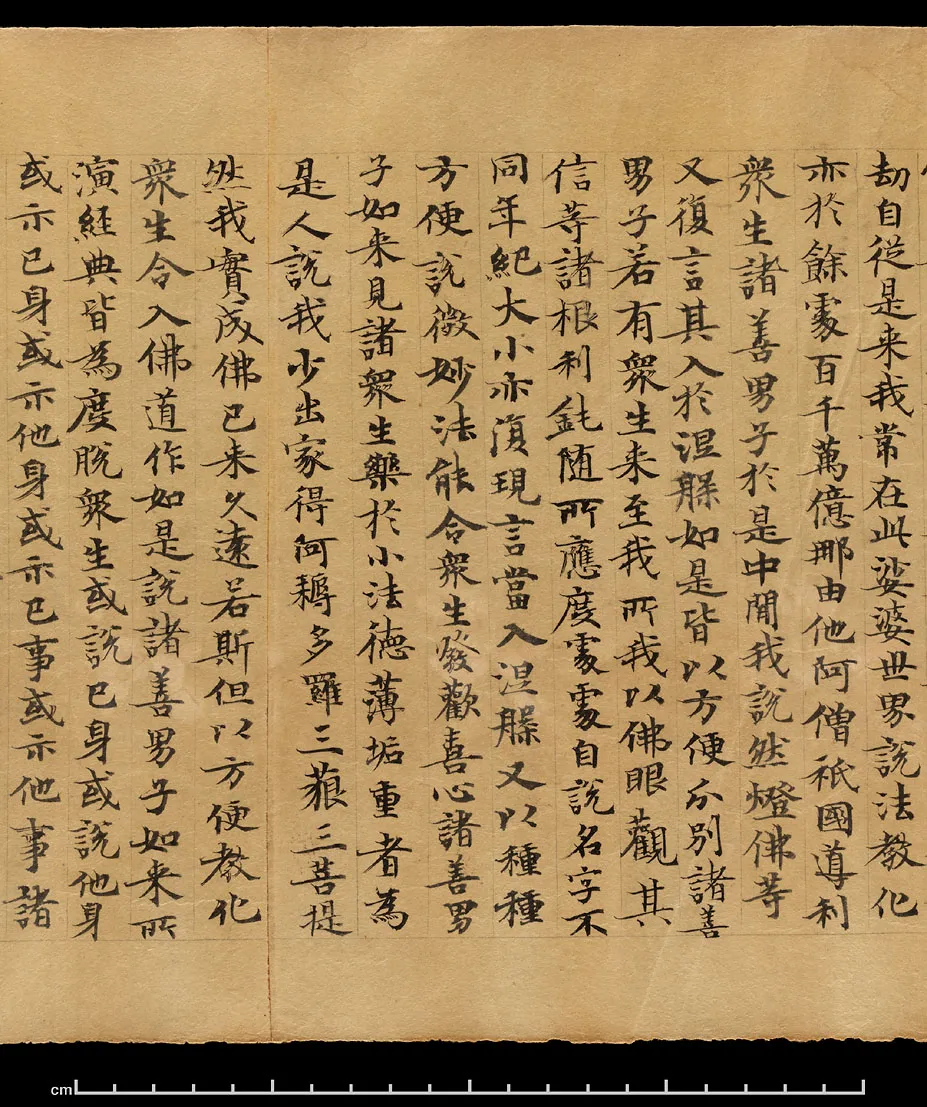 劫自從是来我常在此娑婆世界說法教化
亦於餘處百千萬億那由他阿僧祇國導利
衆生諸善男子於是中閒我說然燈佛等
又復言其入於涅槃如是皆以方便分別諸善
男子若有衆生来至我所我以佛眼觀其
信等諸根利鈍随所應度處處自說名字不
同年紀大小亦復現言當入涅槃又以種種
方便說微妙法能令衆生發歡喜心諸善男
子如来見諸衆生樂於小法德薄垢重者為
是人說我少出家得阿耨多羅三藐三菩提
然我實成佛已来久遠若斯但以方便教化
衆生令入佛道作如是說諸善男子如来所
演經典皆為度脫衆生或說己身或說他身
或示己身或示他身或示己事或示他事諸
cm